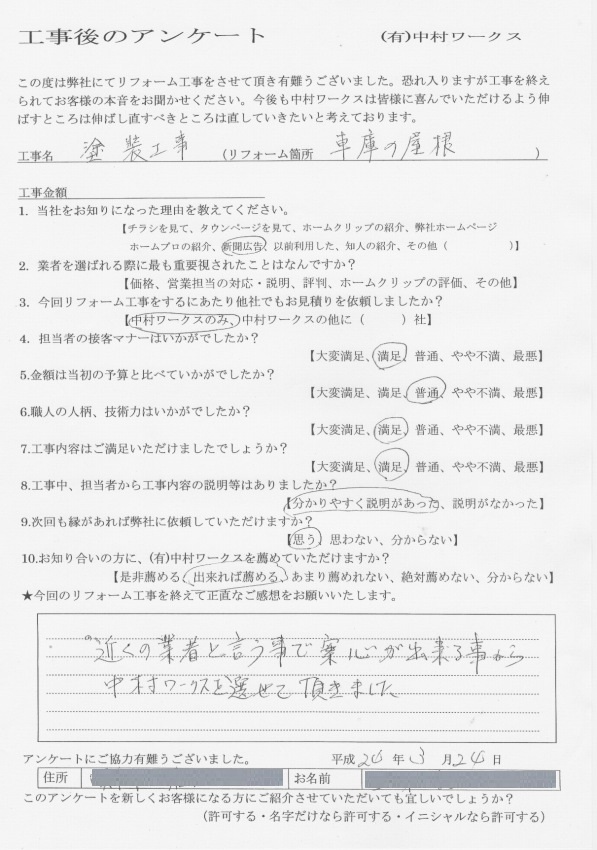 工事後のアンケート　(有)中村ワークス
この度は弊社にてリフォーム工事をさせて頂き有難うございました。恐れ入りますが工事を終え
られてお客様の本音をお聞かせください。今後も中村ワークスは皆様に喜んでいただけるよう伸
ばすところは伸ばし直すべきところは直していきたいと考えております。
工事名　塗装工事　(リフォーム箇所　車庫の屋根　)
工事金額
1．当社をお知りになった理由を教えてください。
【チラシを見て、タウンページを見て、ホームクリップの紹介、弊社ホームページ
ホームプロの紹介、新聞広告、以前利用した、知人の紹介、その他（　）】
2．業者を選ばれる際に最も重要視されたことはなんですか？
【価格、営業担当の対応・説明、評判、ホームクリップの評価、その他】
3．今回リフォーム工事をするにあたり他社でもお見積りを依頼しましたか？
【中村ワークスのみ、中村ワークスの他に（　）社】
4．担当者の接客マナーはいかがでしたか？
【大変満足、満足、普通、やや不満、最悪】
5.金額は当初の予算と比べていかがでしたか？
【大変満足、満足、普通、やや不満、最悪】
6.職人の人柄、技術力はいかがでしたか？
【大変満足、満足、普通、やや不満、最悪】
7.工事内容はご満足いただけましたでしょうか？
【大変満足、満足、普通、やや不満、最悪】
8.工事中、担当者から工事内容の説明等はありましたか？
【分かりやすく説明があった、説明がなかった】
9.次回も縁があれば弊社に依頼していただけますか？
【思う、思わない、分からない】
10.お知り合いの方に、(有)中村ワークスを薦めていただけますか？
【是非薦める、出来れば薦める、あまり薦めれない、絶対薦めない、分からない】
★今回のリフォーム工事を終えて正直なご感想をお願いいたします。
近くの業者と言う事で案心が出来る事から
中村ワークスを選せて頂きました
アンケートにご協力有難うございました。　平成26年3月26日
住所　お名前
このアンケートを新しくお客様になる方にご紹介させていただいても宜しいでしょうか？
（許可する・名字だけなら許可する・イニシャルなら許可する）